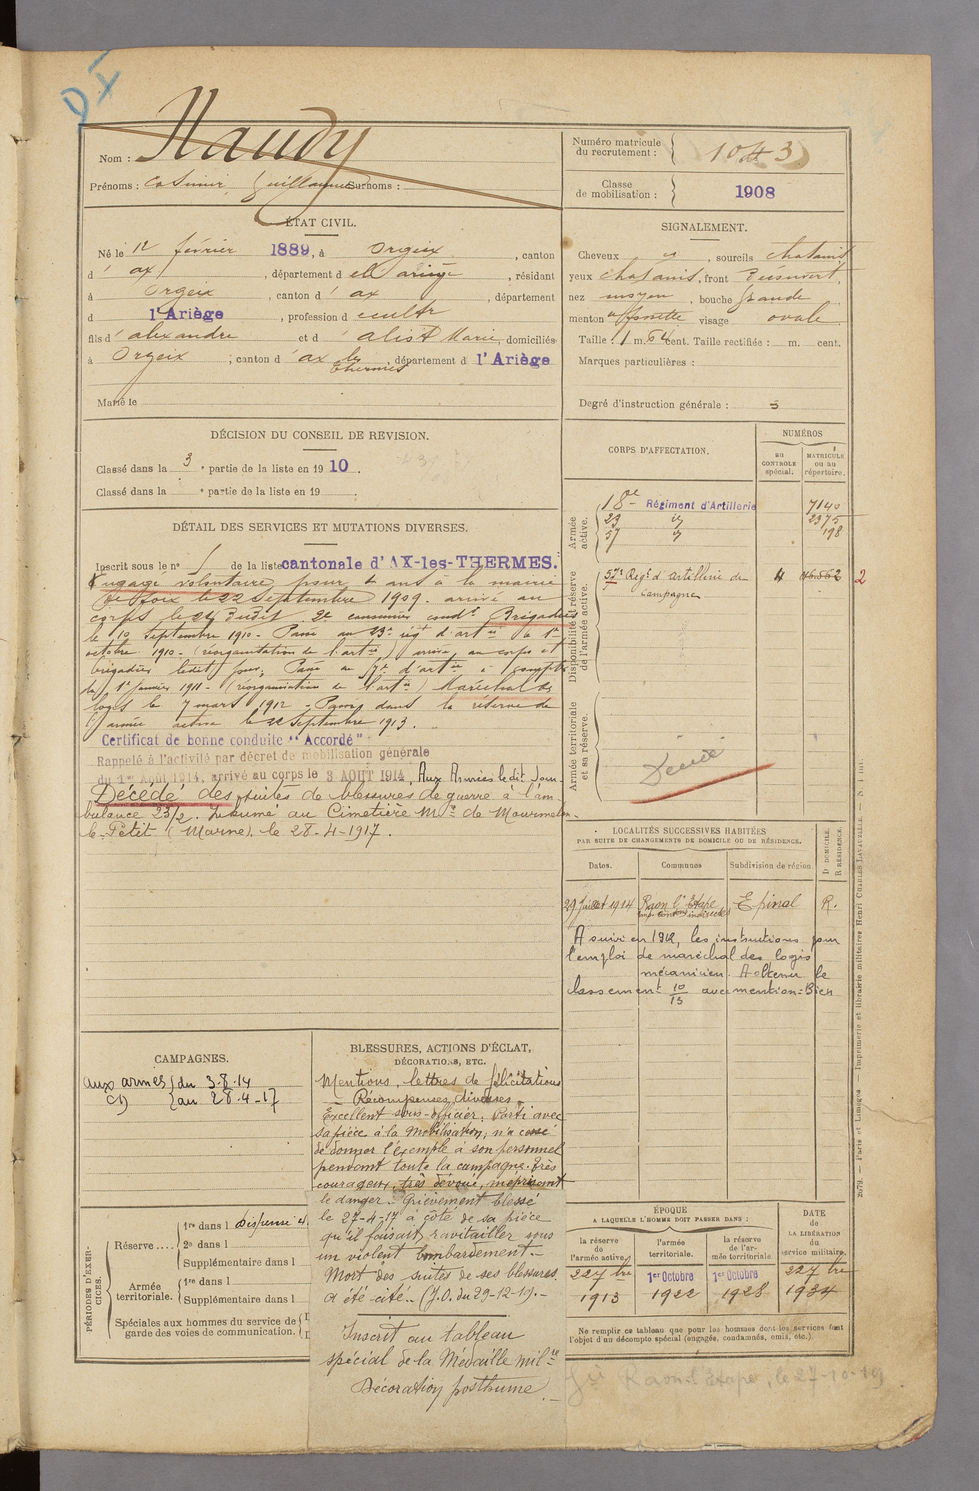 DI
Nom : Naudy
Prénoms : Casimir, Guillaume Surnoms :
Numéro matricule du recrutement : 1043
Classe de mobilisation : 1908
ÉTAT CIVIL.
Né le 12 février 1889, à Orgeix, canton
d'ax, département de l'ariège, résidant
à Orgeix, canton d'ax, département
d l'Ariège, profession d cultr
fils d'alexandre et d'alist Marie, domiciliés
à Orgeix ; canton d'ax les Thermes, département d l'Ariège
Marié le
DÉCISION DU CONSEIL DE REVISION.
Classé dans la 3e partie de la liste en 1910.
Classé dans la e partie de la liste en 19 .
DÉTAIL DES SERVICES ET MUTATIONS DIVERSES.
Inscrit sous le n° 1 de la liste cantonale d'AX-les-THERMES.
Engagé volontaire pour 4 ans à la mairie
de Foix le 22 Septembre 1909. arrivé au
corps le 22 dudit 2e canonnier condr Brigadier
le 10 Septembre 1910 - Passé au 23e rég d'artie le 1er
octobre 1910 - (réorganisation de l'artie) arrivé au corps et
brigadier ledit jour, Passé au 57e d'artie à compter
du 1er Janvier 1911 - (réorganisation de l'artie) Maréchal des
logis le 7 mars 1912 - Passé dans la réserve de
l'armée active le 22 Septembre 1913.
Certificat de bonne conduite "Accordé"
Rappelé à l'activité par décret de mobilisation générale
du 1er Août 1914, arrivé au corps le 3 AOUT 1914, Aux Armées ledit jour
Décédé des suites de blessures de guerre à l'am-
bulance 23/2. Inhumé au Cimetière Mre de Mourmelon-
le-Petit (Marne), le 28-4-1917.
SIGNALEMENT.
Cheveux , sourcils chatains
yeux chatains, front découvert,
nez moyen, bouche grande
menton à fossette visage ovale
Taille : 1 m. 64 cent. Taille rectifiée : m. cent.
Marques particulières :
Degré d'instruction générale : 3
CORPS D'AFFECTATION.
NUMÉROS
au CONTROLE spécial.
MATRICULE ou au répertoire.
Armée active.
18e Régiment d'Artillerie 7140
23 " 2375
57 " 198
Disponibilité et réserve de l'armée active.
57e Régt d'artillerie de Campagne 4 2
Armée territoriale et sa réserve.
Décédé
LOCALITÉS SUCCESSIVES HABITÉES
PAR SUITE DE CHANGEMENTS DE DOMICILE OU DE RÉSIDENCE.
Dates. Communes Subdivision de région D. DOMICILE. R. RÉSIDENCE.
29 Juillet 1914 Raon l'Etape Epinal R.
A suivi en 1912, les instructions pour
l'emploi de maréchal des logis
mécanicien. A obtenu le
classement 10/13 avec mention = Bien
CAMPAGNES.
aux armées du 3-8-14
C) au 28-4-17
BLESSURES, ACTIONS D'ÉCLAT,
DÉCORATIONS, ETC.
Mentions, lettres de félicitations
Récompenses diverses
Excellent sous-officier. Parti avec
sa pièce à la mobilisation, n'a cessé
de donner l'exemple à son personnel
pendant toute la campagne. Très
courageux, très dévoué, méprisant
le danger. Grièvement blessé
le 27-4-17 à côté de sa pièce
qu'il faisait ravitailler sous
un violent bombardement.
Mort des suites de ses blessures.
A été cité. (J.O. du 29-12-19).-
Inscrit au tableau
spécial de la Médaille Milre
Décoration posthume.
PÉRIODES D'EXERCICES.
Réserve....
1re dans l Dispensé
2e dans l
Supplémentaire dans l
Armée territoriale.
1re dans l
Supplémentaire dans l
Spéciales aux hommes du service de garde des voies de communication.
ÉPOQUE
A LAQUELLE L'HOMME DOIT PASSER DANS :
la réserve de l'armée active. l'armée territoriale. la réserve de l'armée territoriale.
DATE de LA LIBÉRATION du service militaire.
22 7bre 1913 1er Octobre 1922 1er Octobre 1928 22 7bre 1934
Ne remplir ce tableau que pour les hommes dont les services font
l'objet d'un décompte spécial (engagés, condamnés, omis, etc.)
Raon-l'Etape, le 27-10-19
2079. — Paris et Limoges. — Imprimerie et librairie militaires Henri CHARLES-LAVAUZELLE.